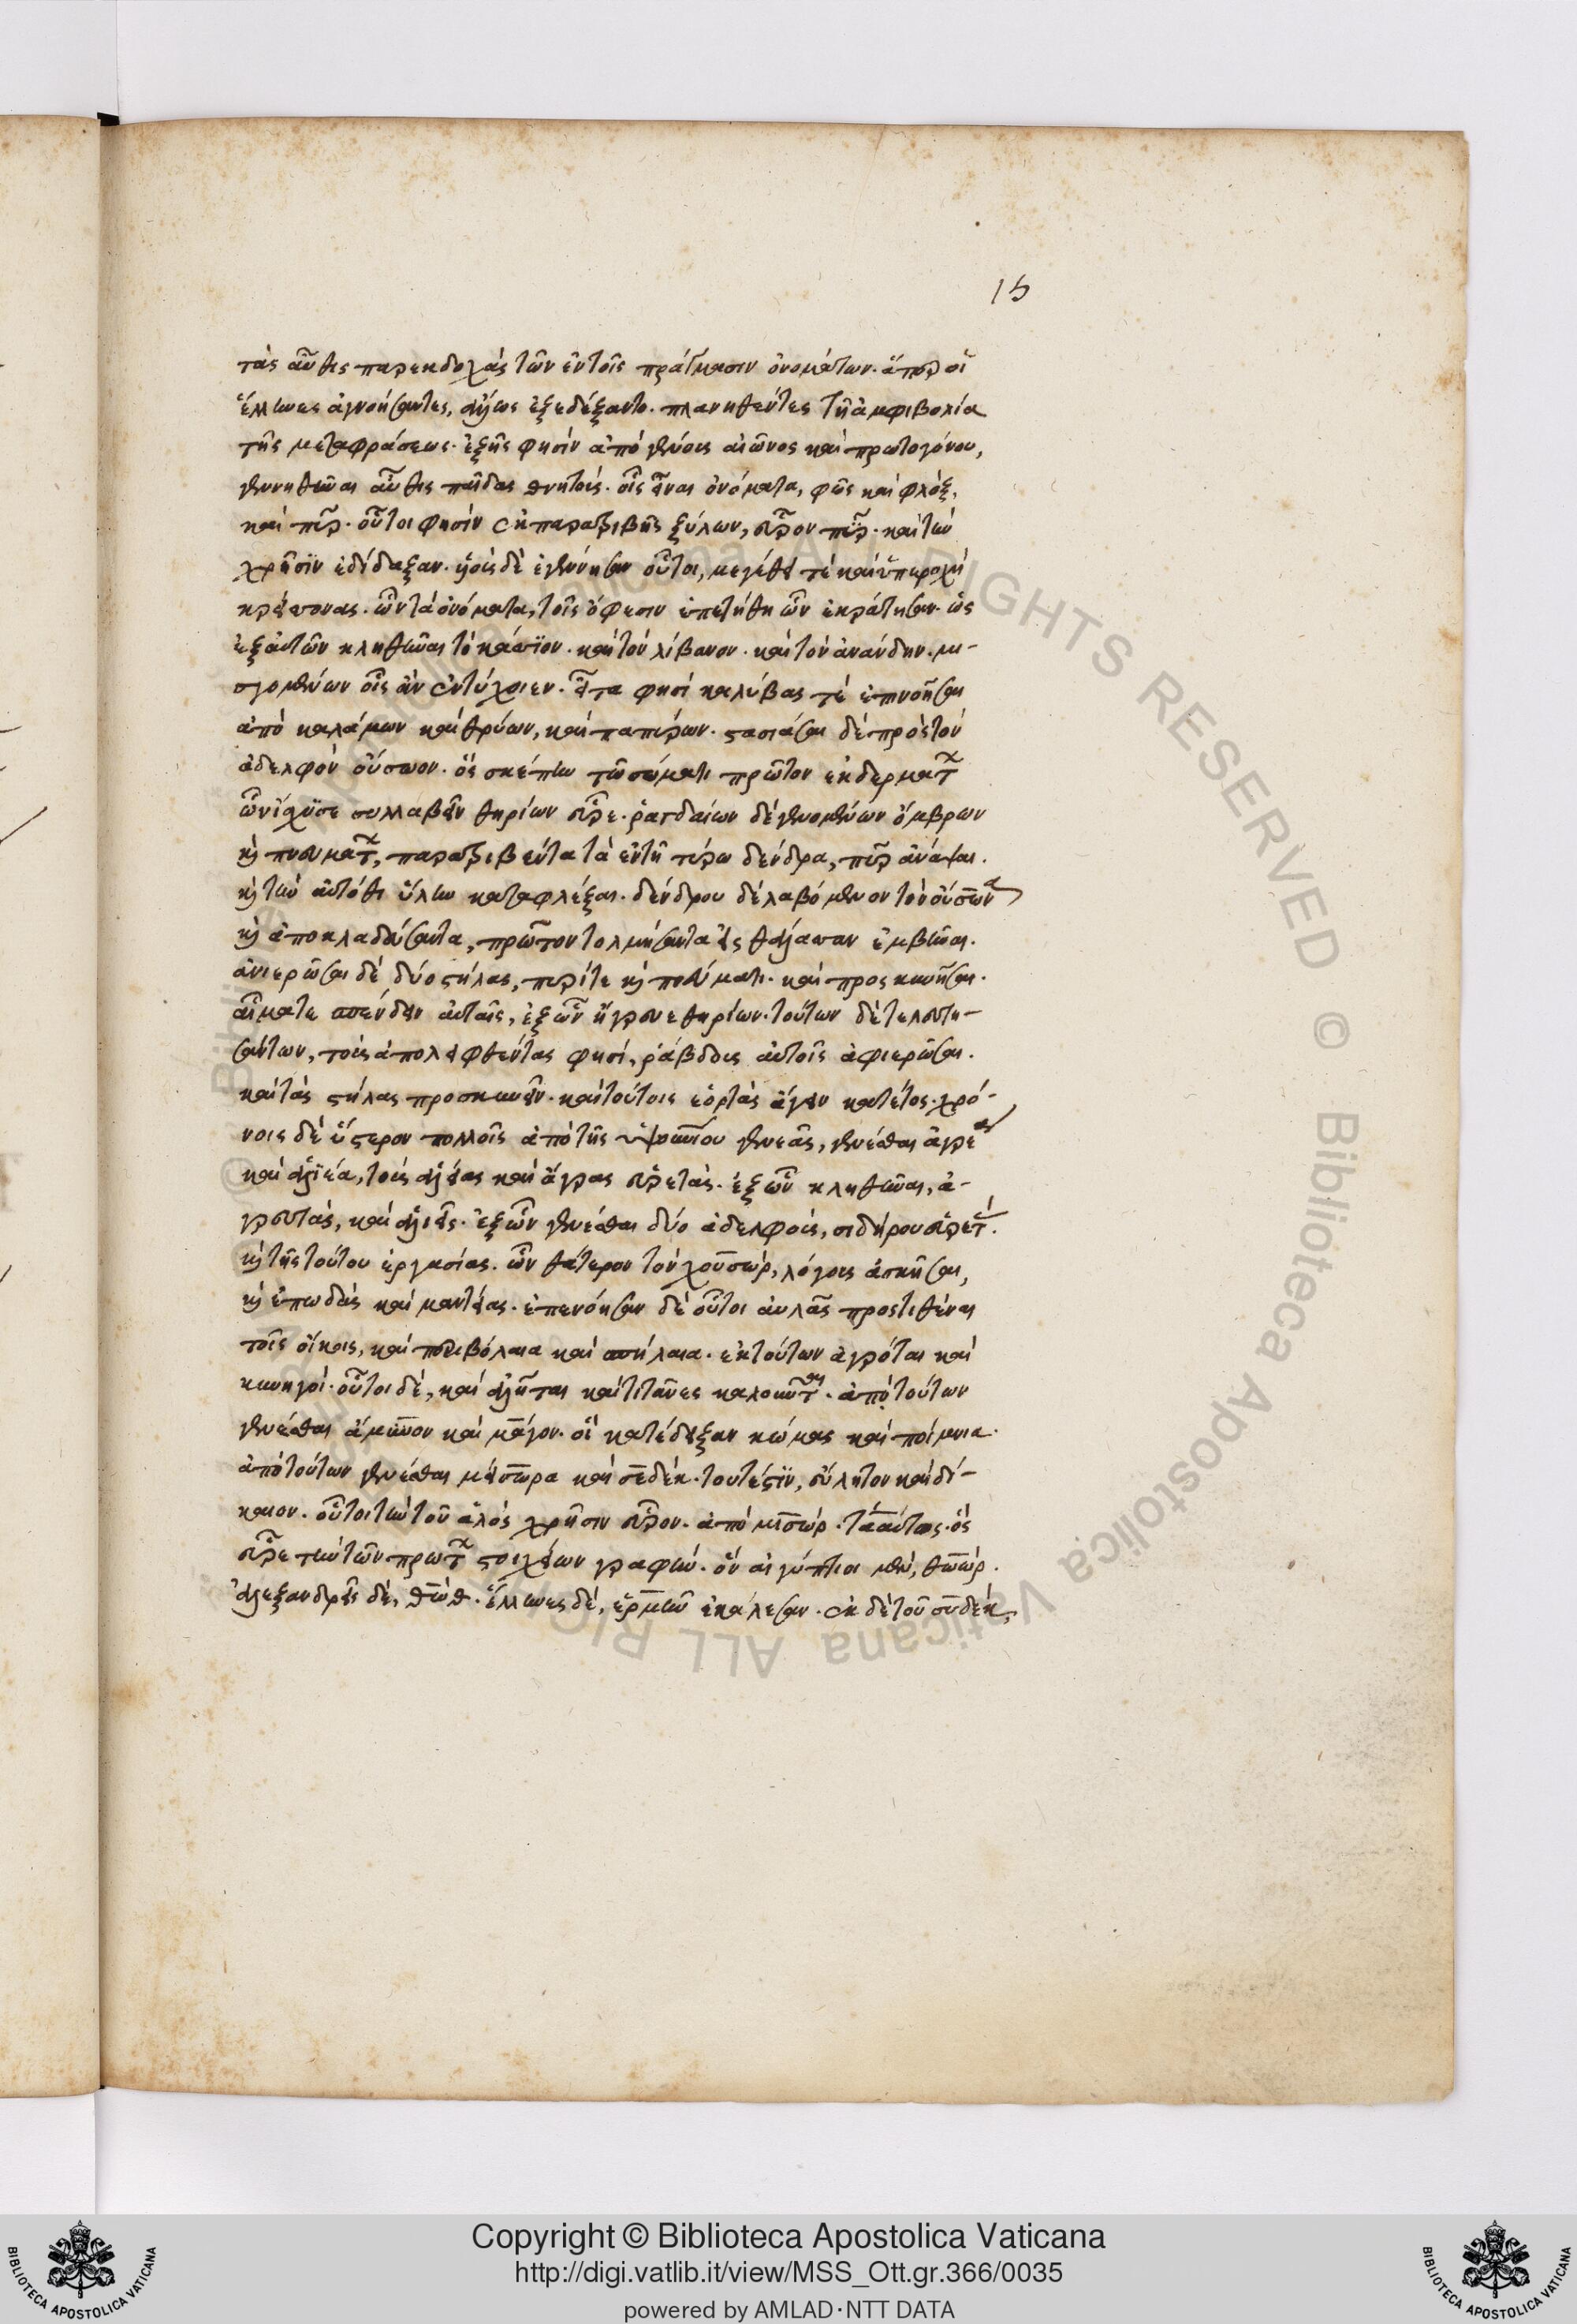 15
τὰς αὖθις παρεκδοχὰς τῶν ἐν τοῖς πράγμασιν ὀνομάτων. ἅπερ οἱ
ἕλληνες ἀγνοήσαντες, ἄλλως ἐξεδέξαντο. πλανηθέντες τῇ ἀμφιβολίᾳ
τῆς μεταφράσεως. ἑξῆς φησὶν ἀπὸ γένους αἰῶνος καὶ πρωτογόνου,
γεννηθῆναι αὖθις παῖδας θνητούς. οἷς εἶναι ὀνόματα, φῶς καὶ φλόξ,
καὶ πῦρ. οὗτοι φησὶν ἐκ παρατριβῆς ξύλων, εὗρον πῦρ. καὶ τὴν
χρῆσϊν ἐδίδαξαν. υἱοὺς δὲ ἐγέννησαν οὗτοι, μεγέθει τὲ καὶ ὑπεροχῆ
κρείσσονας. ὧν τὰ ὀνόματα, τοῖς ὄρεσιν ἐπετέθη ὧν ἐκράτησαν. ὡς
ἐξ αὐτῶν κληθῆναι τὸ κάσσϊον. καὶ τὸν λίβανον. καὶ τὸν ἀνάνδην. μι-
σγομένων οἷς ἂν ἐντύχοιεν. εἶτα φησὶ καλύβας τὲ ἐπινοῆσαι
ἀπὸ καλάμων καὶ θρύων, καὶ παπύρων. στασιάσαι δὲ πρὸς τὸν
ἀδελφὸν οὔσωον. ὃς σκέπην τῶ σώματι πρῶτον ἐκ δερμάτ
ὧν ἴσχϋσε συλλαβεῖν θηρίων εὗρε. ῥαγδαίων δὲ γενομένων ὄμβρων
κ πνευμάτ, παρατριβέντα τὰ ἐν τῇ τύρω δένδρα, πῦρ ἀνάψαι.
κ τὴν αὐτόθι ὕλην καταφλέξαι. δένδρου δὲ λαβόμενον τὸν οὔσων
κ ἀποκλαδεύσαντα, πρῶτον τολμήσαντα εἰς θάλασσαν ἐμβῆναι.
ἀνιερῶσαι δὲ δύο στήλας, πυρί τε κ πνεύματι. καὶ προσκυνῆσαι.
αἷμα τε σπένδειν αὐταῖς, ἐξ ὧν ἤγρευε θηρίων. τούτων δὲ τελευτη-
σάντων, τοὺς ἀπολειφθέντας φησὶ, ῥάβδους αὐτοῖς ἀφιερῶσαι.
καὶ τὰς στήλας προσκυνεῖν. καὶ τούτοις ἑορτὰς ἄγειν κατ' ἔτος. χρό-
νοις δὲ ὕστερον πολλοῖς ἀπὸ τῆς ὑψουρανίου γενεᾶς, γενέσθαι ἀγρέα
καὶ ἁλϊέα, τοὺς ἁλείας καὶ ἄγρας εὑρετάς. ἐξ ὧν κληθῆναι, ἀ-
γρευτὰς, καὶ ἁλιεῖς. ἐξ ὧν γενέσθαι δύο ἀδελφοὺς, σιδήρου εὑρετ.
κ τῆς τούτου ἐργασίας. ὧν θάτερον τὸν χουσὼρ, λόγους ἀσκῆσαι,
κ ἐπωδὰς καὶ μαντείας. ἐπενόησαν δὲ οὗτοι αὐλὰς προστιθέναι
τοῖς οἴκοις, καὶ περιβόλαια καὶ σπήλαια. ἐκ τούτων ἀγρόται καὶ
κυνηγοί. οὗτοι δὲ, καὶ ἀλῆται καὶ τιτᾶνες καλοῦνται. ἀπὸ τούτων
γενέσθαι ἄμυνον καὶ μάγον. οἳ κατέδειξαν κώμας καὶ ποίμνια.
ἀπὸ τούτων γενέσθαι μεισώρα καὶ σεδέκ. τουτέστϊν, εὔλητον καὶ δί-
καιον. οὗτοι τὴν τοῦ ἁλὸς χρῆσιν εὗρον. ἀπὸ μισώρ. τάαυτος. ὃς
εὗρε τὴν τῶν πρώτ στοιχείων γραφήν. ὃν αἰγύπτιοι μὲν, θωώρ.
ἀλεξανδρεῖς δὲ, θωύθ. ἕλληνες δὲ, ἑρμῆν ἐκάλεσαν. ἐκ δὲ τοῦ συδέκ,
Copyright © Biblioteca Apostolica Vaticana
http://digi.vatlib.it/view/MSS_Ott.gr.366/0035
powered by AMLAD·NTT DATA